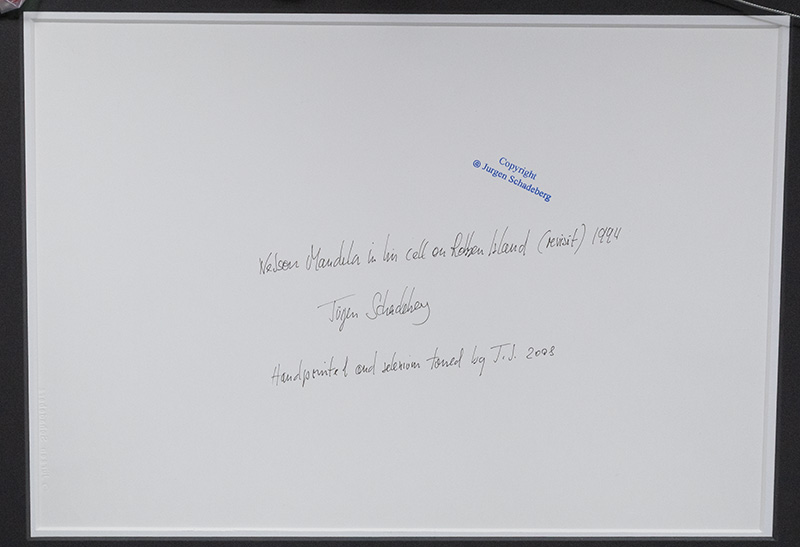 Copyright
@ Jurgen Schadeberg
Nelson Mandela in his cell on Robben Island (revisit) 1994
Jürgen Schadeberg
Handprinted and selenium toned by J.S. 2008